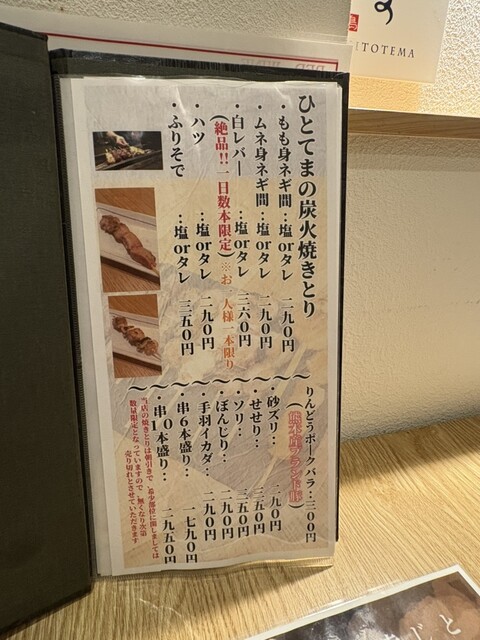 ひとてまの炭火焼きとり
・もも身ネギ間：塩orタレ 二九〇円
・ムネ身ネギ間：塩orタレ 二九〇円
・白レバー ：塩orタレ 三六〇円
(絶品!!一日数本限定)※お一人様一本限り
・ハツ ：塩orタレ 二九〇円
・ふりそで ：塩orタレ 三五〇円
りんどうポークバラ：三〇〇円
(熊本産ブランド豚)
・砂ズリ： 二九〇円
・せせり： 三五〇円
・ソリ： 三五〇円
・ぼんじり： 二九〇円
・手羽イカダ： 二九〇円
・串6本盛り： 一七九〇円
・串10本盛り： 二九五〇円
当店の焼きとりは朝引きで、希少部位に関しましては
数量限定となっていますので、無くなり次第
売り切れとさせていただきます
ITOTEMA